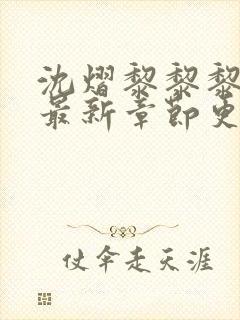 沈熠黎黎黎
最新章節更
仗伞走天涯